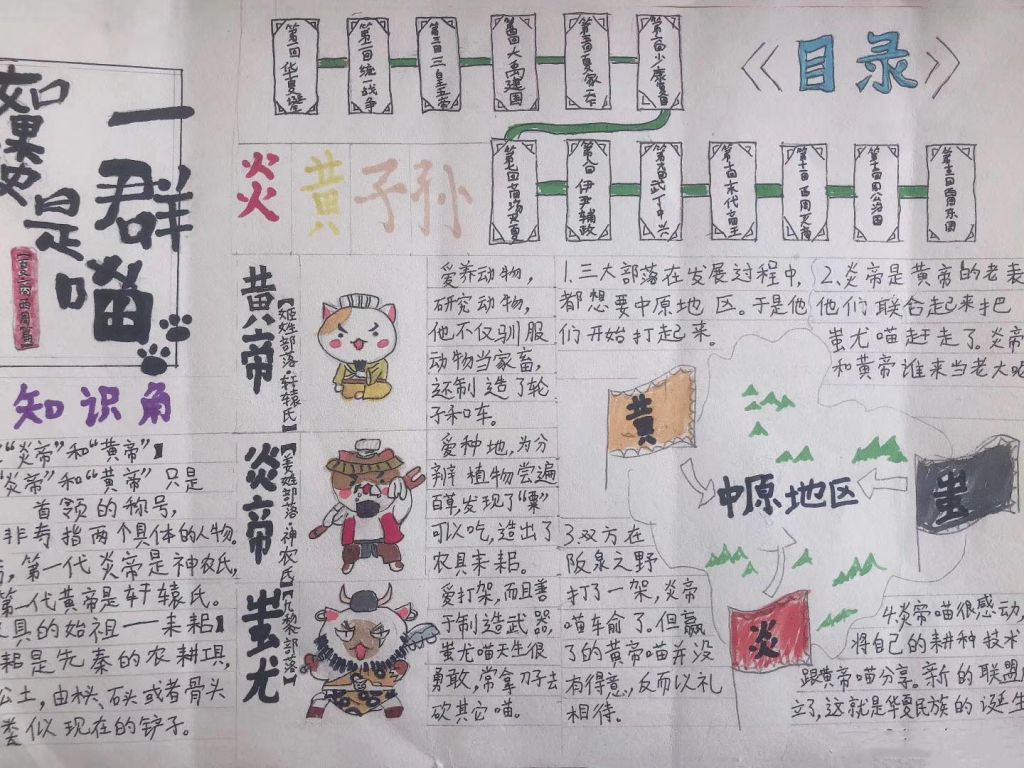 如果历史是
一群喵
《目录》
第一回 华夏诞生
第二回 统一战争
第三回 三皇五帝
第四回 大禹建国
第五回 夏家
第六回 少康复国
第七回 商汤灭夏
第八回 伊尹辅政
第九回 武丁中兴
第十回 末代商王
第十一回 西周灭商
第十二回 周公治国
炎黄子孙
黄帝
【姬姓部落·轩辕氏】
爱养动物,
研究动物,
他不仅驯服
动物当家畜,
还制造了轮
子和车。
炎帝
【姜姓部落·神农氏】
爱种地,为分
辩植物尝遍
百草,发现了“粟”
可以吃,造出了
农具耒耜。
蚩尤
【九黎部落】
爱打架,而且善
于制造武器,
蚩尤喵天生很
勇敢,常拿刀子去
砍其它喵。
知识角
“炎帝”和“黄帝”】
“炎帝”和“黄帝”只是
首领的称号,
非专指两个具体的人物。
,第一代炎帝是神农氏,
第一代黄帝是轩辕氏。
具的始祖——耒耜】
耜是先秦的农耕工具,
土,由木头、石头或者骨头
类似现在的铲子。
1.三大部落在发展过程中,
都想要中原地区。于是他
们开始打起来。
2.炎帝是黄帝的老表
他们联合起来把
蚩尤喵赶走了。炎帝
和黄帝谁来当老大呢
黄
中原地区
蚩
炎
3.双方在
阪泉之野
打了一架,炎帝
喵车俞了。但赢
了的黄帝喵并没
有得意,反而以礼
相待。
4.炎帝喵很感动,
将自己的耕种技术
跟黄帝喵分享。新的联盟
立了,这就是华夏民族的诞生